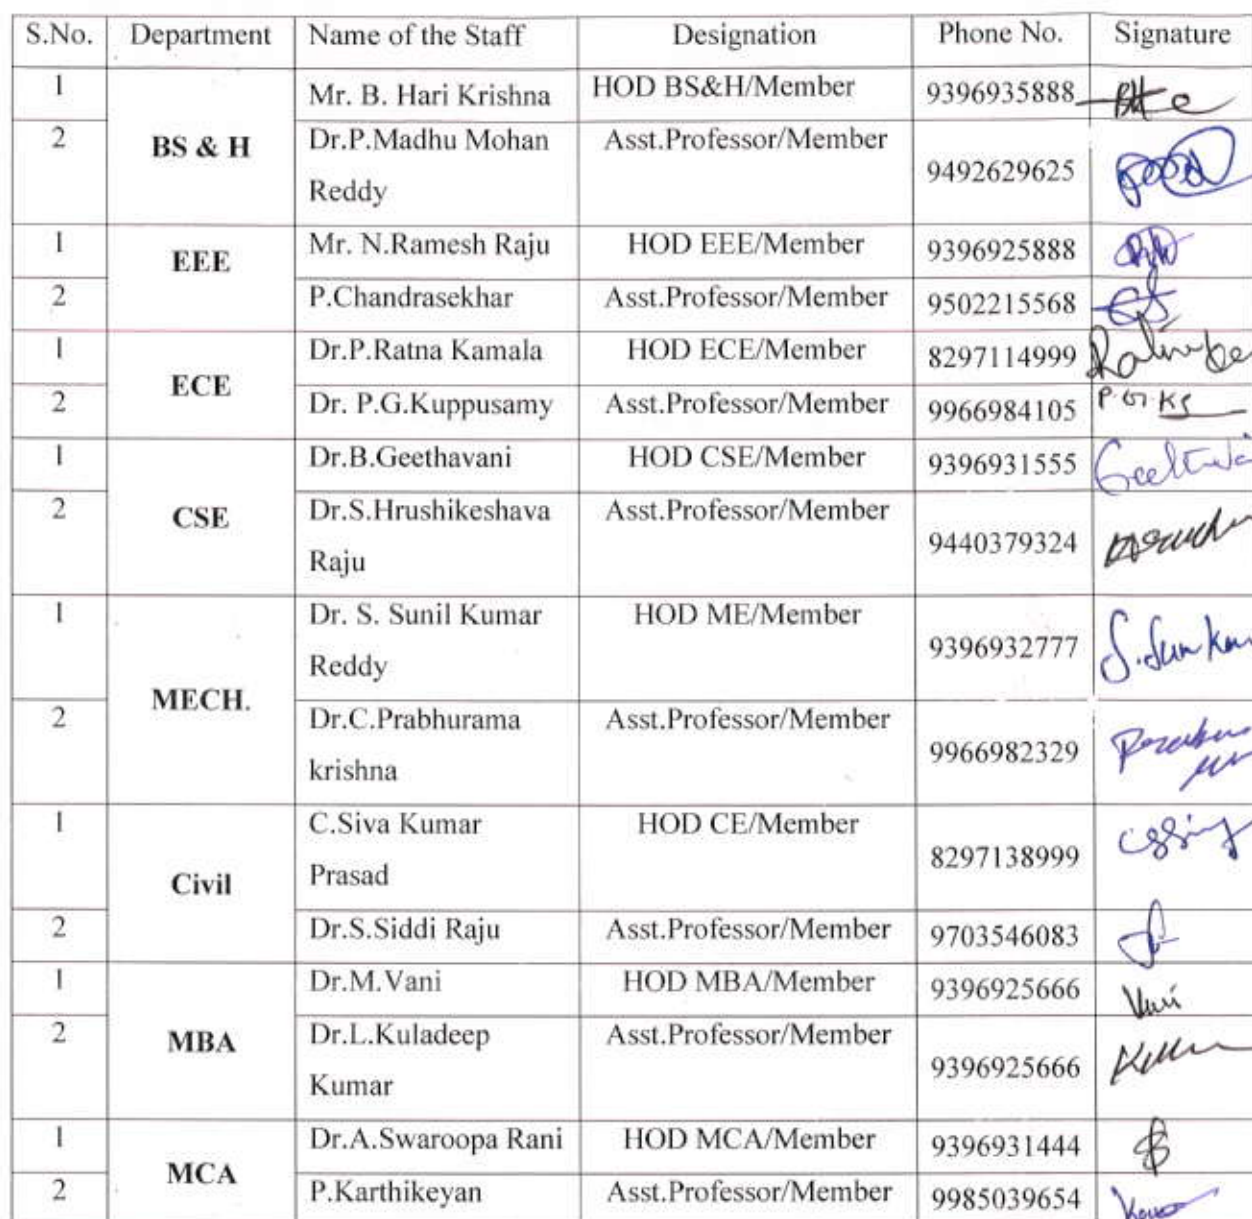 S.No. Department Name of the Staff Designation Phone No. Signature
1 BS & H Mr. B. Hari Krishna HOD BS&H/Member 9396935888
2 Dr.P.Madhu Mohan Asst.Professor/Member 9492629625
Reddy
1 EEE Mr. N.Ramesh Raju HOD EEE/Member 9396925888
2 P.Chandrasekhar Asst.Professor/Member 9502215568
1 ECE Dr.P.Ratna Kamala HOD ECE/Member 8297114999
2 Dr. P.G.Kuppusamy Asst.Professor/Member 9966984105 P.G.KS
1 CSE Dr.B.Geethavani HOD CSE/Member 9396931555
2 Dr.S.Hrushikeshava Asst.Professor/Member 9440379324
Raju
1 MECH. Dr. S. Sunil Kumar HOD ME/Member 9396932777
Reddy
2 Dr.C.Prabhurama Asst.Professor/Member 9966982329
krishna
1 Civil C.Siva Kumar HOD CE/Member 8297138999
Prasad
2 Dr.S.Siddi Raju Asst.Professor/Member 9703546083
1 MBA Dr.M.Vani HOD MBA/Member 9396925666 Vani
2 Dr.L.Kuladeep Asst.Professor/Member 9396925666
Kumar
1 MCA Dr.A.Swaroopa Rani HOD MCA/Member 9396931444
2 P.Karthikeyan Asst.Professor/Member 9985039654